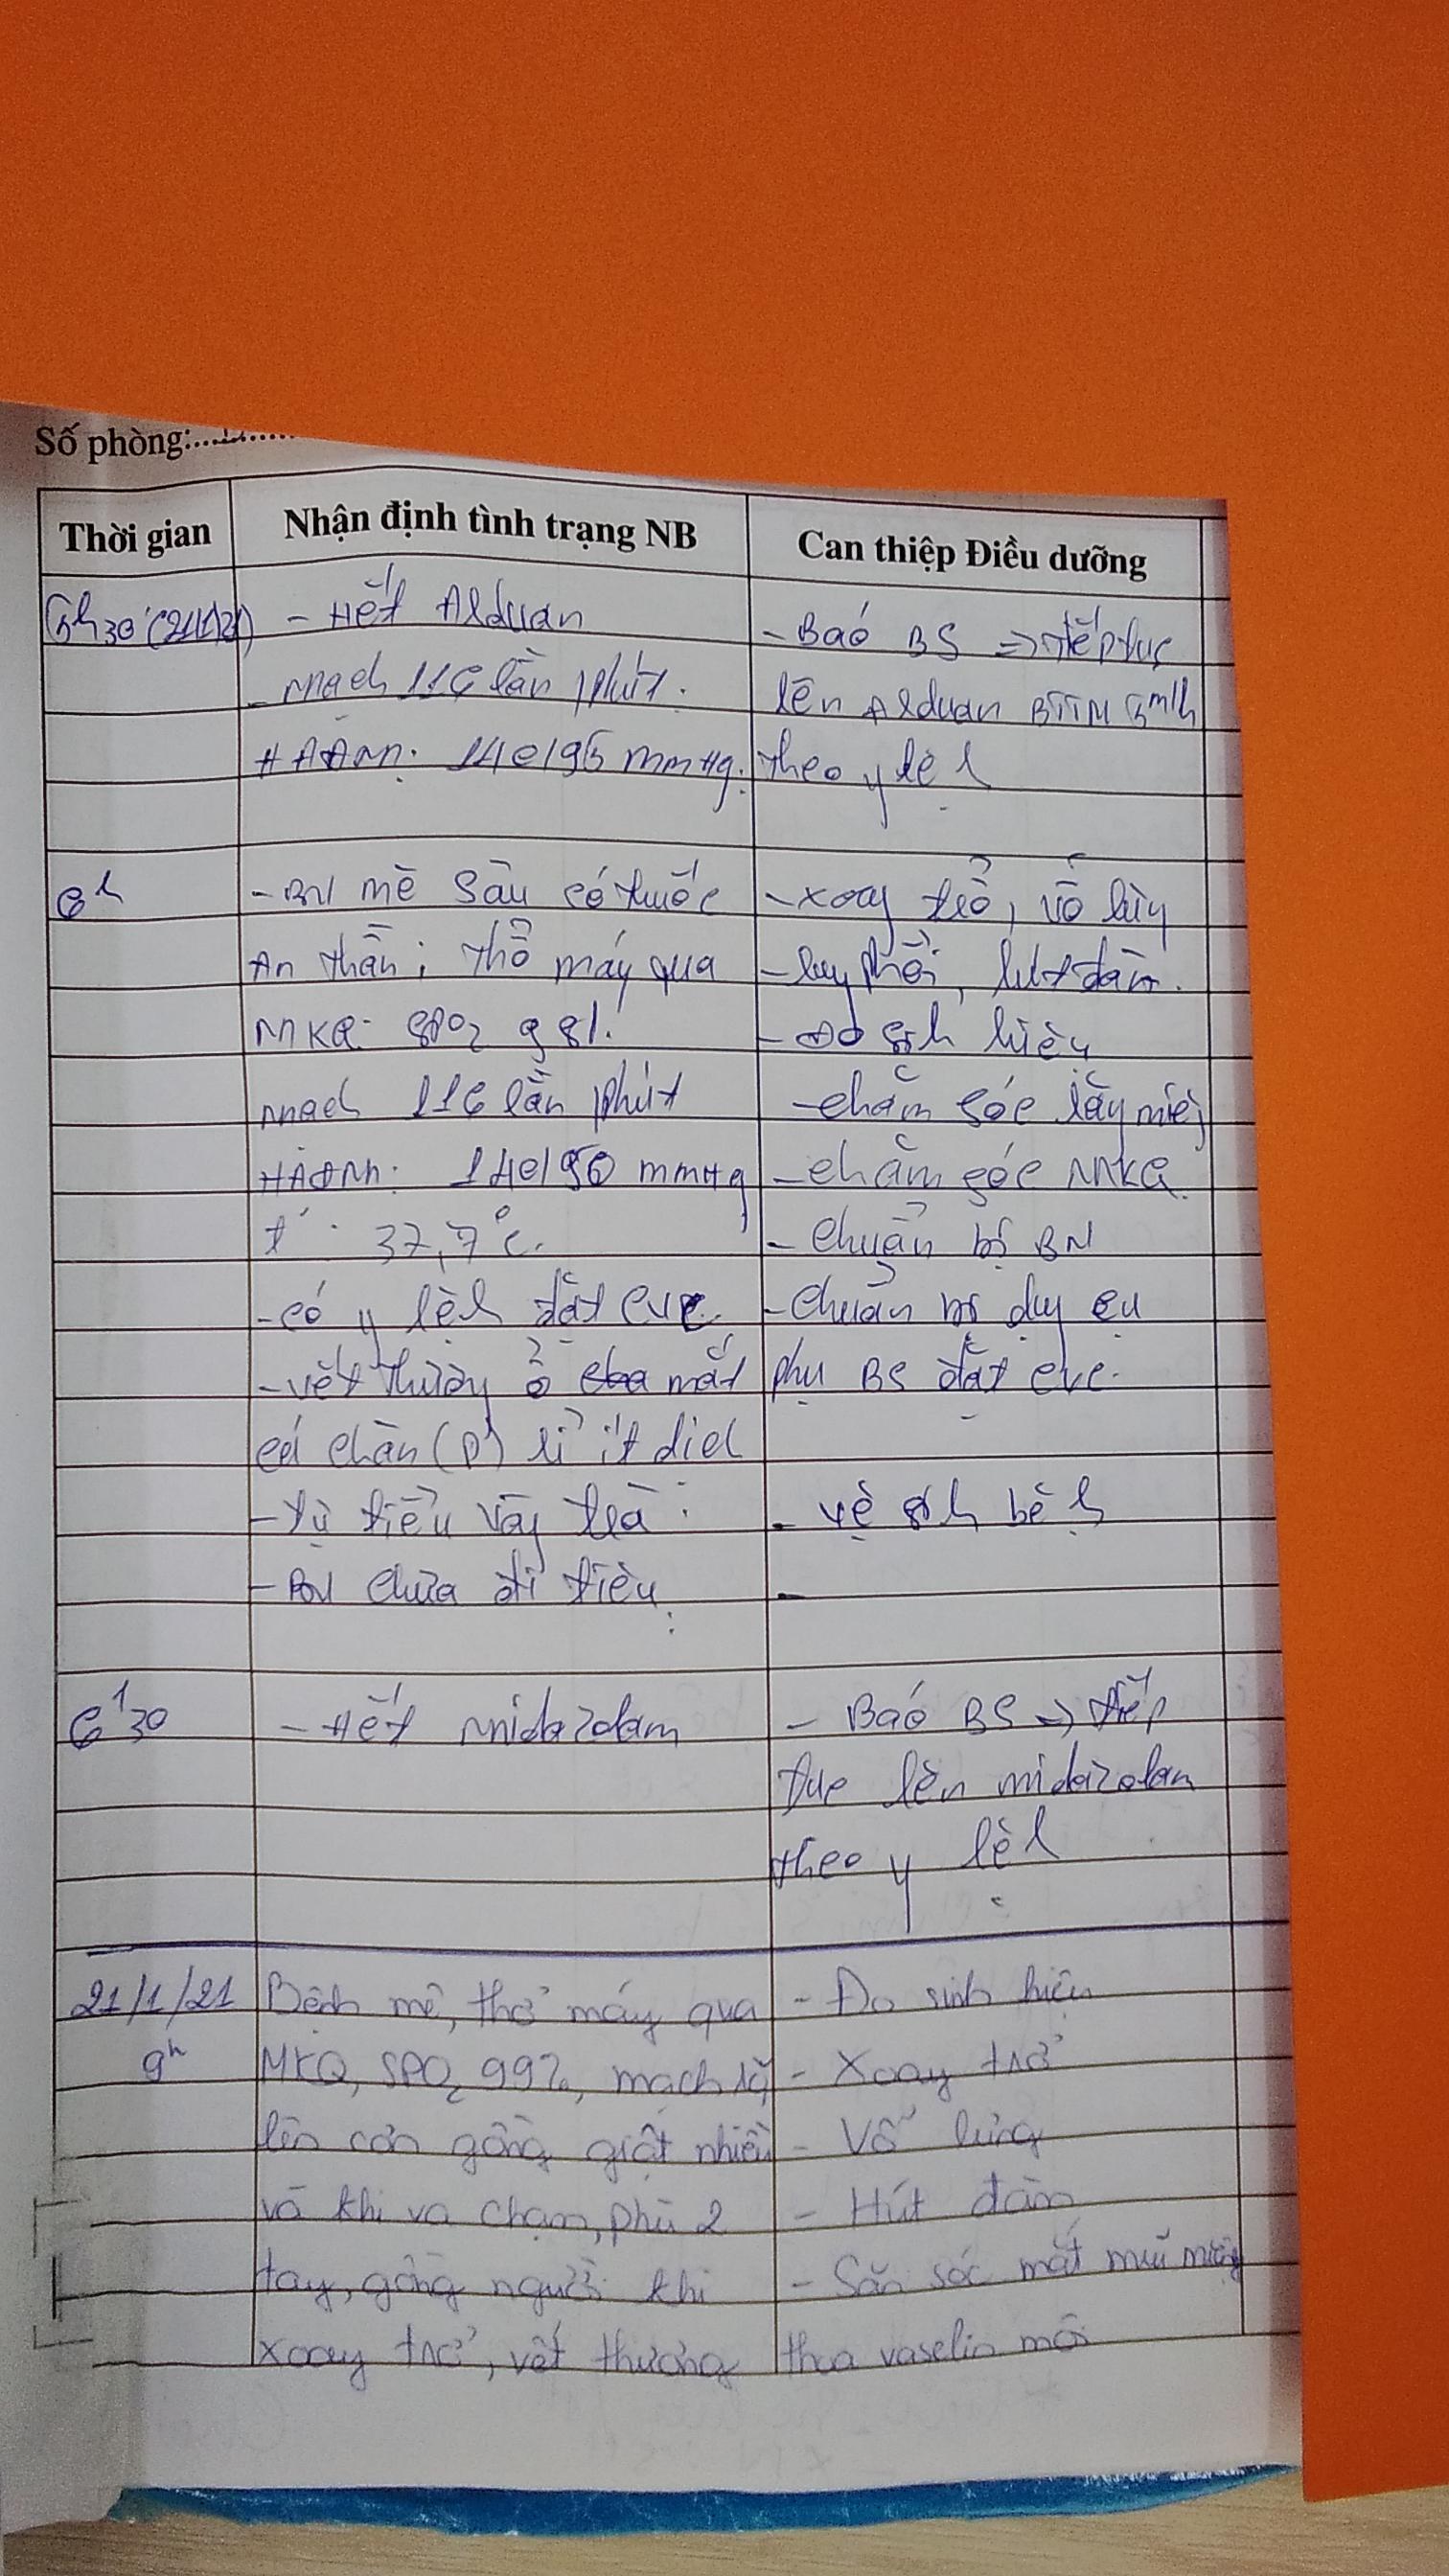 Số phòng:
Thời gian
Nhận định tình trạng NB
Can thiệp Điều dưỡng
5h30 (21/1/21)
- Hết Arduan
- Mạch 116 lần/phút.
HAĐM: 140/95 mmHg.
- Báo BS => tiếp tục
lên Arduan BTTM 5ml/h
theo y lệ
6h
- BN mê sâu có thuốc
An thần, thở máy qua
MKQ SPO2 98%
Mạch 116 lần/phút
HAĐM: 140/90 mmHg
t°: 37,7°C.
- có y lệh đặt CVC
- vết thương ở mắt
cá chân (P) rỉ ít dịch
- tự tiểu vàng trà
- BN chưa đi tiêu
- Xoay trở, vỗ lưng
- phổi, hút đàm.
- Đo sinh hiệu
- chăm sóc răng miệng
- chăm sóc MKQ
- Chuẩn bị BN
- Chuẩn bị dụng cụ
phụ BS đặt CVC.
- vệ sih bệh
6h30
- Hết midazolam
- Báo BS => tiếp
tục lên midazolam
theo y lệh
21/1/21
9h
Bệnh mê, thở máy qua
MKQ, SPO2 99%, mạch rõ,
lên cơn gồng giật nhiều
và khi va chạm, phù 2
tay, gồng người khi
xoay trở, vết thương
- Đo sinh hiệu
- Xoay trở
- Vỗ lưng
- Hút đàm
- Săn sóc mắt mũi miệng
thoa vaselin môi